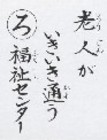 老人が
いきいき通う
ろ福祉センター